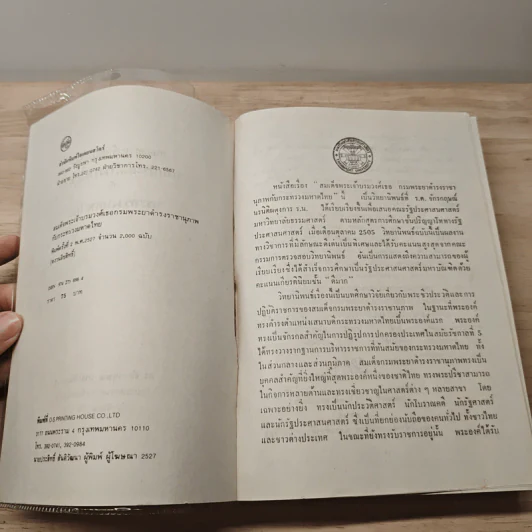 สำนักพิมพ์ไทยวัฒนาพานิช
กรุงเทพมหานคร 10200
สมเด็จพระเจ้าบรมวงศ์เธอกรมพระยาดำรงราชานุภาพ
กับกระทรวงมหาดไทย
พิมพ์ครั้งที่ 2 พ.ศ.2527 จำนวน 2,000 ฉบับ
(สงวนลิขสิทธิ์)
ราคา 75 บาท
พิมพ์ที่ O.S.PRINTING HOUSE CO.,LTD
พระราม 4 กรุงเทพมหานคร 10110
โทร. 392-0741, 392-0984
ผู้พิมพ์ ผู้โฆษณา 2527
หนังสือเรื่อง "สมเด็จพระเจ้าบรมวงศ์เธอ กรมพระยาดำรงราชา
นุภาพกับกระทรวงมหาดไทย" นี้ เป็นวิทยานิพนธ์ที่ ร.ต. จักรกฤษณ์
นรนิติผดุงการ ร.น. ได้เรียบเรียงขึ้นเพื่อเสนอคณะรัฐประศาสนศาสตร์
มหาวิทยาลัยธรรมศาสตร์ ตามหลักสูตรการศึกษาชั้นปริญญาโททางรัฐ
ประศาสนศาสตร์ เมื่อเดือนตุลาคม 2505 วิทยานิพนธ์ฉบับนี้เป็นผลงาน
ทางวิชาการที่มีลักษณะดีเด่นเป็นพิเศษและได้รับคะแนนสูงสุดจากคณะ
กรรมการตรวจสอบวิทยานิพนธ์ อันเป็นการแสดงถึงความสามารถของผู้
เรียบเรียงซึ่งได้สำเร็จการศึกษาเป็นรัฐประศาสนศาสตร์มหาบัณฑิตด้วย
คะแนนเกียรตินิยมชั้น "ดีมาก"
วิทยานิพนธ์เรื่องนี้เป็นบทศึกษาวิจัยเกี่ยวกับพระชีวประวัติและการ
ปฏิบัติราชการของสมเด็จกรมพระยาดำรงราชานุภาพ ในฐานะที่พระองค์
ทรงดำรงตำแหน่งเสนาบดีกระทรวงมหาดไทยเป็นพระองค์แรก พระองค์
ทรงเป็นจักรกลสำคัญในการปฏิรูปการปกครองประเทศในสมัยรัชกาลที่ 5
ได้ทรงวางรากฐานการบริหารราชการที่ทันสมัยของกระทรวงมหาดไทย ทั้ง
ในส่วนกลางและส่วนภูมิภาค สมเด็จกรมพระยาดำรงราชานุภาพทรงเป็น
บุคคลสำคัญที่ยิ่งใหญ่ที่สุดพระองค์หนึ่งของชาติไทย ทรงพระปรีชาสามารถ
ในกิจการหลายด้านและทรงเชี่ยวชาญในศาสตร์ต่าง ๆ หลายสาขา โดย
เฉพาะอย่างยิ่ง ทรงเป็นนักประวัติศาสตร์ นักโบราณคดี นักรัฐศาสตร์
และนักรัฐประศาสนศาสตร์ ซึ่งเป็นที่ยกย่องนับถือของคนทั่วไป ทั้งชาวไทย
และชาวต่างประเทศ ในขณะที่ยังทรงรับราชการอยู่นั้น พระองค์ได้รับ